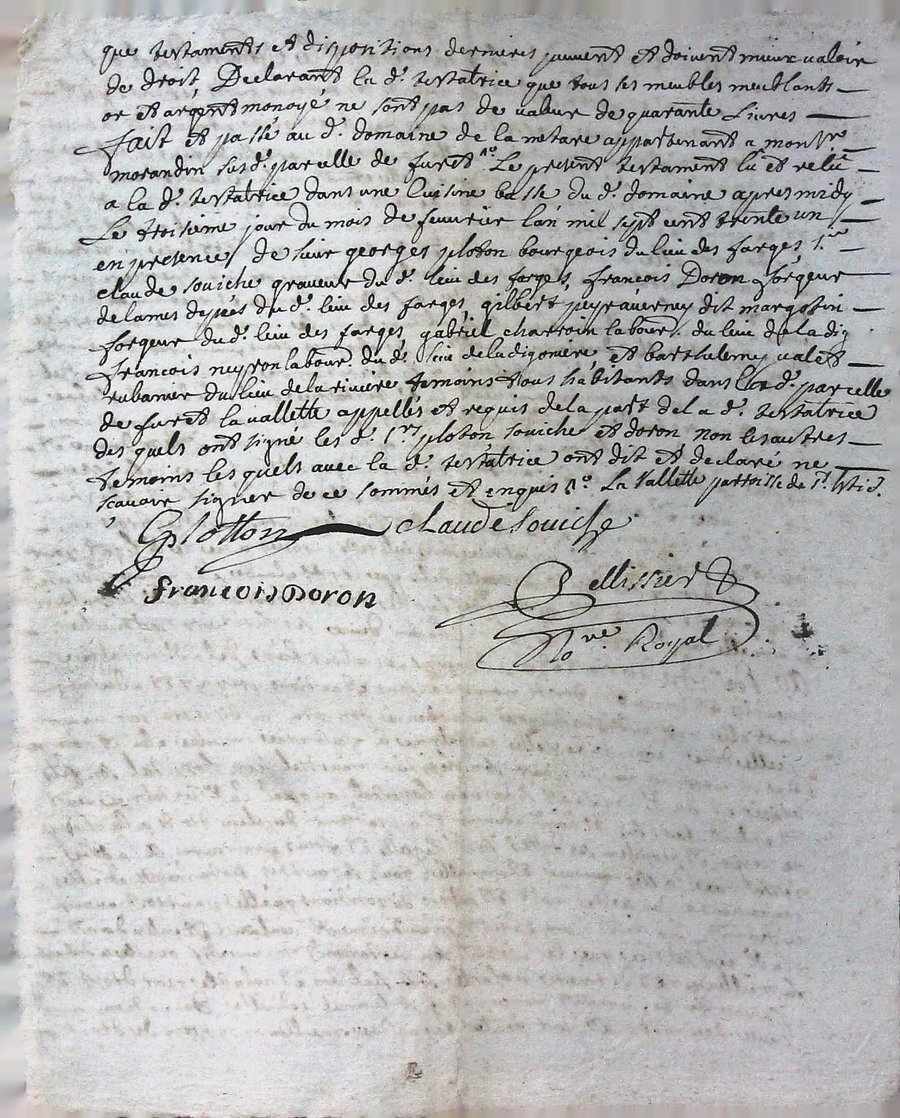 que testaments et dispositions dernieres peuvent et doivent mieux valoir
de droit, Declarant la d. testatrice que tous ses meubles meublants
or et argent monoyé ne sont pas de valeur de quarante Livres
fait et passé au d. domaine de la metare appartenant a mont.r
morandin susd. parcelle de furet Le present testament lû et relû
a la d. testatrice dans une Cuisine basse du d. domaine apres midy
Le troisieme jour du mois de feuvrier lan mil sept cent trente un
en presence de sieur georges ploton bourgeois du lieu des farges, s.ieur
claude souiche graveur du d. lieu des farges, francois Doron forgeur
de lames depées du d. lieu des farges, gilbert peyraverney dit margotin
forgeur du d. lieu des farges, gabriel charroin labour. du lieu de la dig
francois neyron labour. du d. lieu de la digoniere et barthelemy valet
rubanier du lieu de la riviere temoins tous habitants dans lad. parcelle
de furet la vallette appellés et requis de la part de la d. testatrice
des quels ont signé les d. s.rs ploton souiche et doron non les autres
temoins les quels avec la d. testatrice ont dit et declaré ne
scavoir signer de ce sommés et enquis La Vallette parroisse de s.t
Gplotton claude souiche
francois Doron Pellissier
No.re Royal